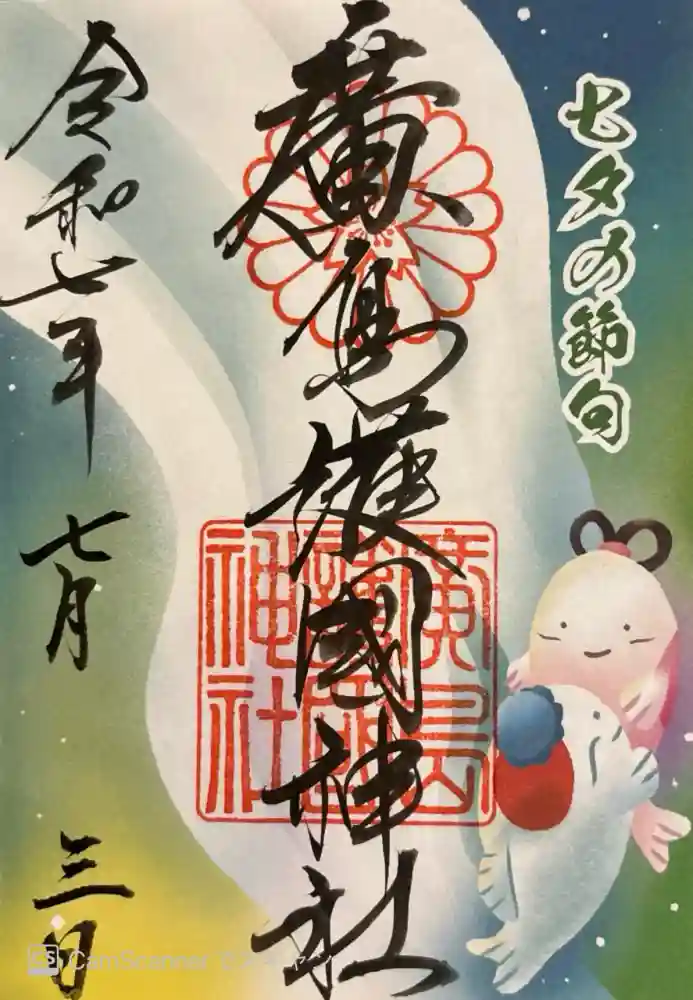 七夕の節句
廣島護國神社
令和七年 七月 三日
廣島
護國
神社
CS CamScanner